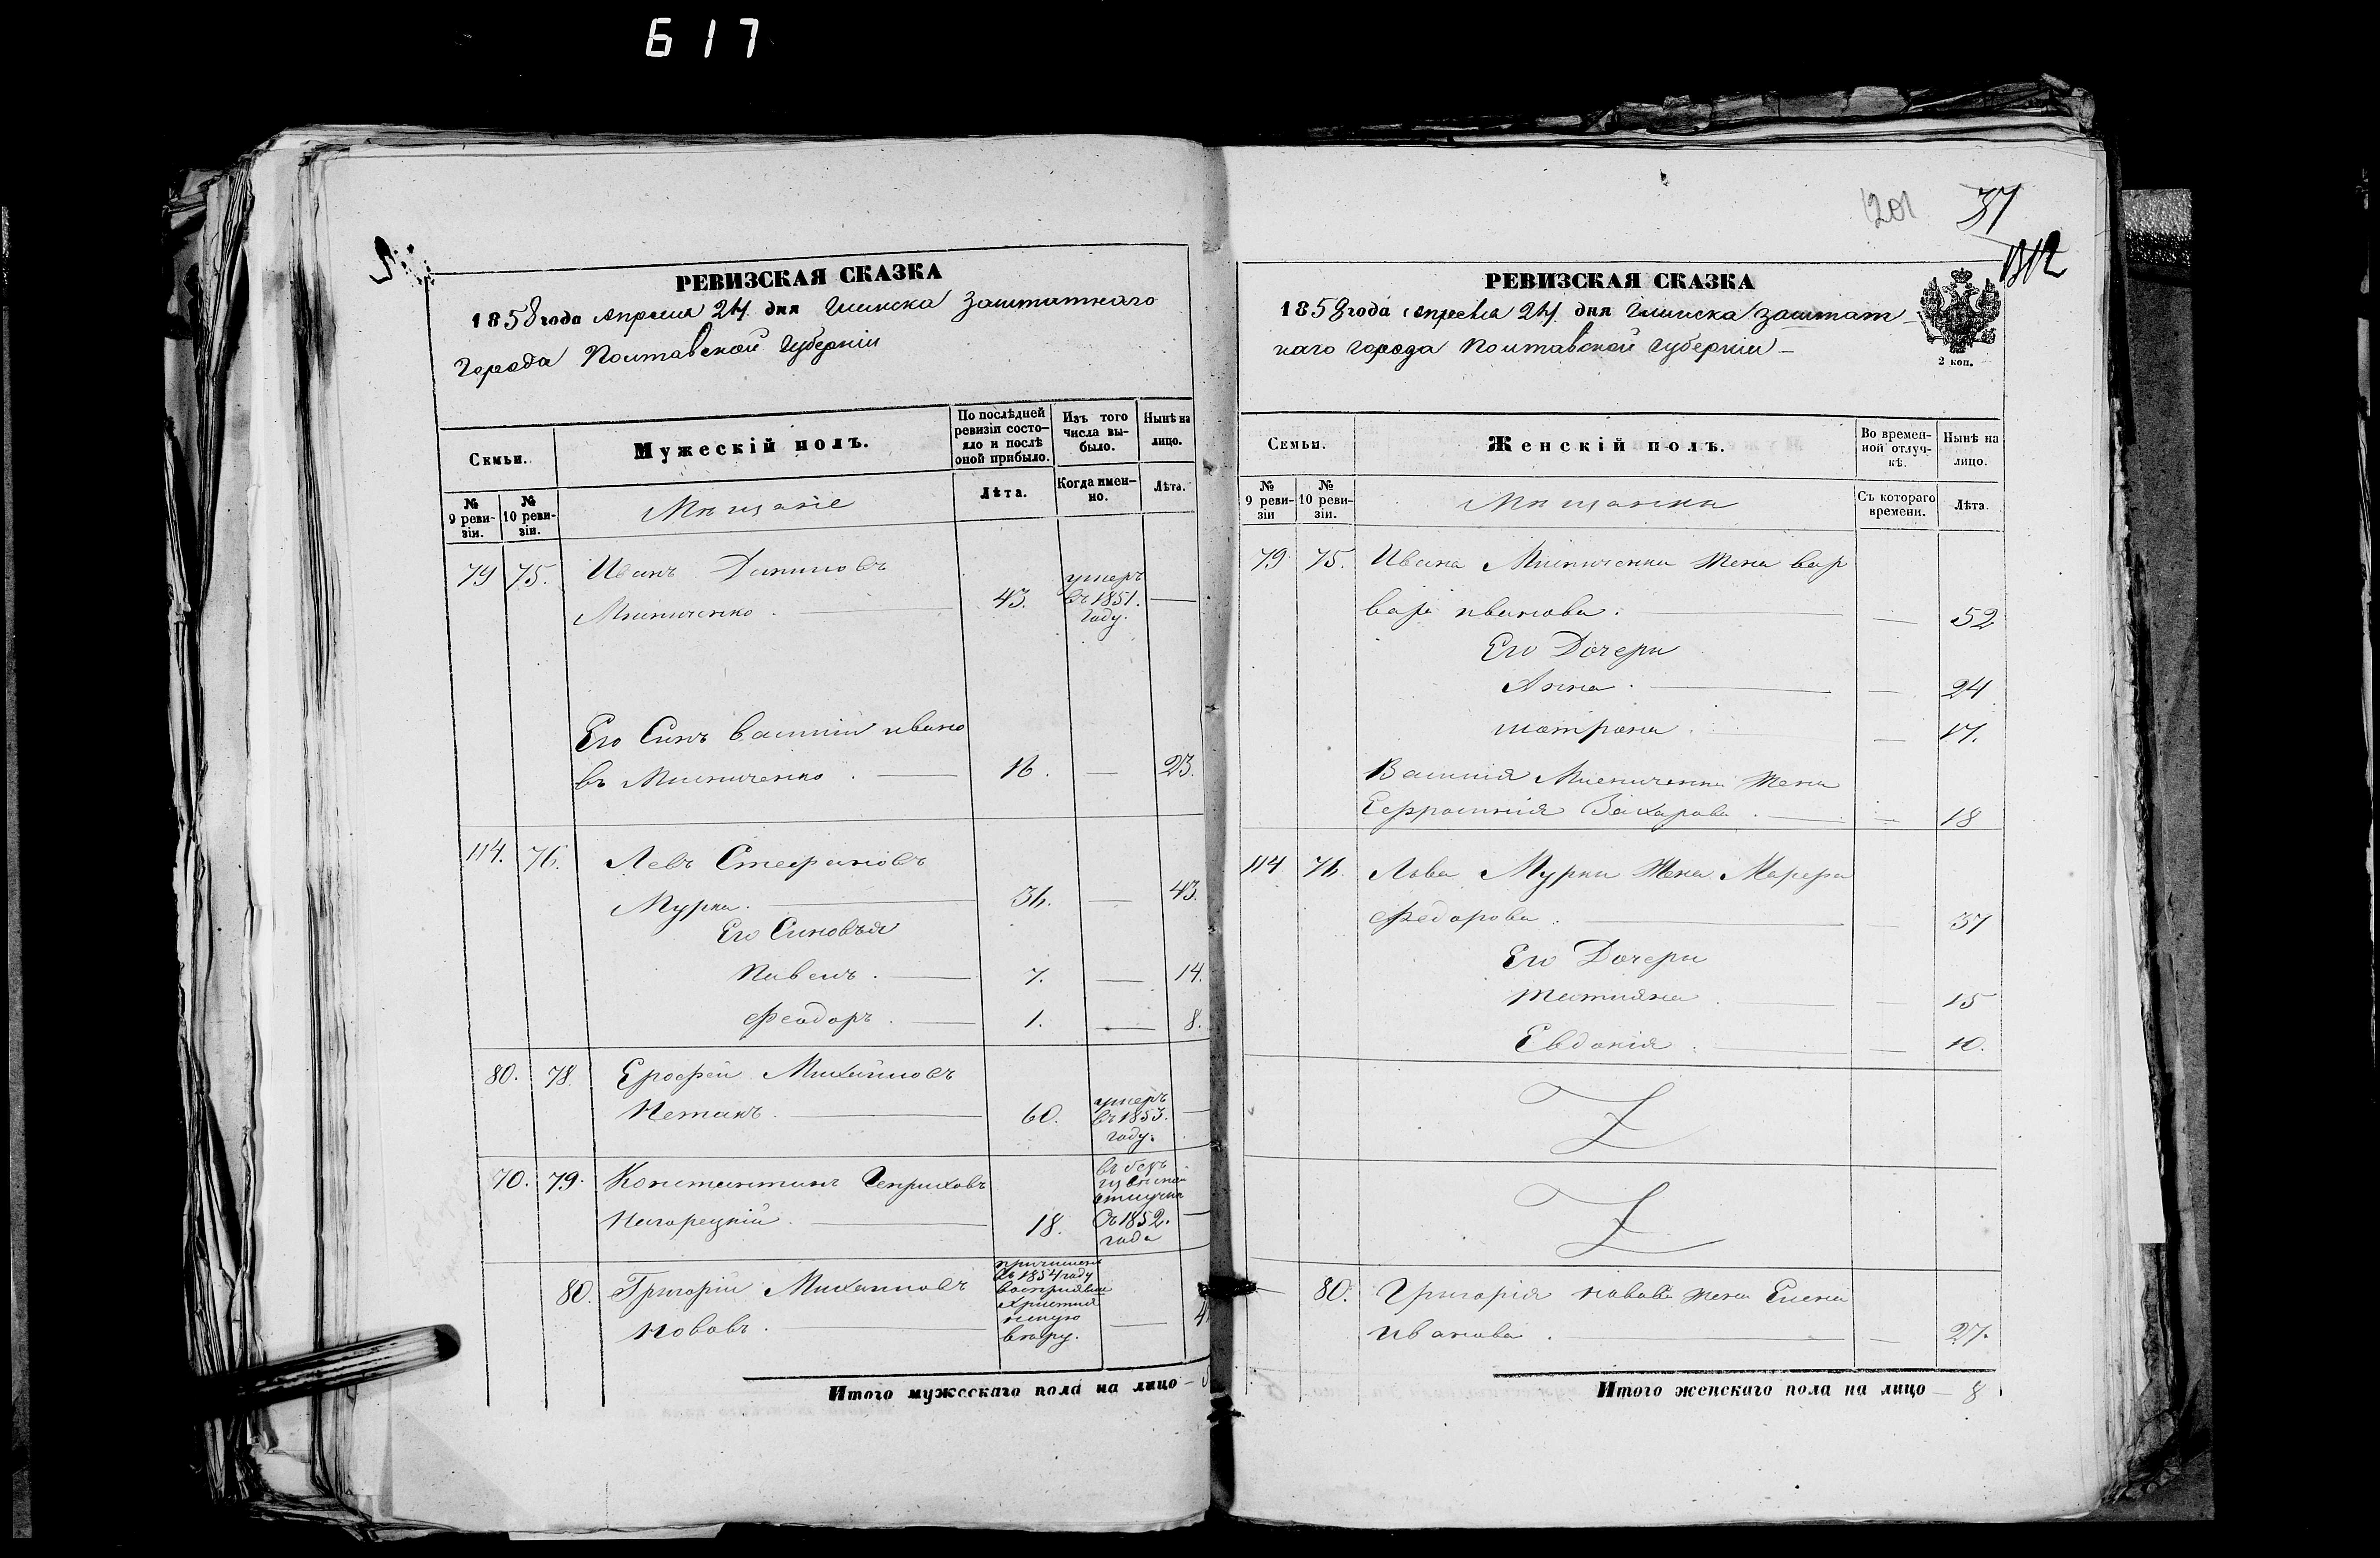 617
РЕВИЗСКАЯ СКАЗКА
1858 года Апреля 24 дня Глинска Заштатнаго
Города Полтавской Губерніи
Семьи.
Мужескій полъ.
По послѣдней ревизіи состояло и послѣ оной прибыло.
Изъ того числа выбыло.
Нынѣ на лицо.
№ 9 ревизіи.
№ 10 ревизіи.
Мѣщане
Лѣта.
Когда именно.
Лѣта.
79 75. Иванъ Даниловъ
умеръ
43. въ 1851.
году.
Его Синъ Василій ивано
въ 16. — 23.
114. 76. Левъ Стефановъ
Мурка. 36. — 43.
Его Синовья
Павелъ. — 7. — 14.
Феодоръ. — 1. — 8.
80. 78. Ерофей Михайловъ
60. умеръ
въ 1853.
году.
70. 79. Константинъ
18.
въ безъ
извѣсной
отлучки
Съ 1852.
года
80. Григорій Михайловъ
Нововъ.
причисленъ
въ 1854 году
воспріявш
Христиа
нскую
вѣру.
Итого мужескаго пола на лицо
201
37
РЕВИЗСКАЯ СКАЗКА
1858 года Апреля 24 дня Глинска заштат
наго города Полтавской губерніи
2 коп.
Семьи.
Женскій полъ.
Во временной отлучкѣ.
Нынѣ на лицо.
№ 9 ревизіи
№ 10 ревизіи.
Мѣщанки
Съ котораго времени.
Лѣта.
79 75. Ивана жена вар
вара иванова. — 52
Его Дочери
Анна. — 24
матрона. — 17.
Василія жена
Ефросинія Захарова. — 18
114 76. Льва Мурки Жена Марфа
Федорова. — 37
Его Дочери
татияна. — 15
Евдокія. — 10.
Z
Z
80. Григорія новова жена Елена
иванова. — 27.
Итого женскаго пола на лицо — 8